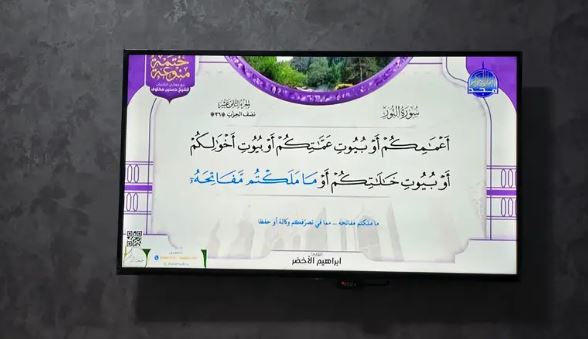 ختمة
منوعة
الشيخ حسنين مخلوف
المجد
الجزء الثامن عشر
نصف الحزب ﴿٣٦﴾
سُورَةُ النُّورِ
أَعْمَٰمِكُمْ أَوْ بُيُوتِ عَمَّٰتِكُمْ أَوْ بُيُوتِ أَخْوَٰلِكُمْ
أَوْ بُيُوتِ خَٰلَٰتِكُمْ أَوْ مَا مَلَكْتُم مَّفَاتِحَهُۥٓ
ما ملكتم مفاتحه .. مما في تصرفكم وكالة أو حفظا
ابراهيم الأخضر